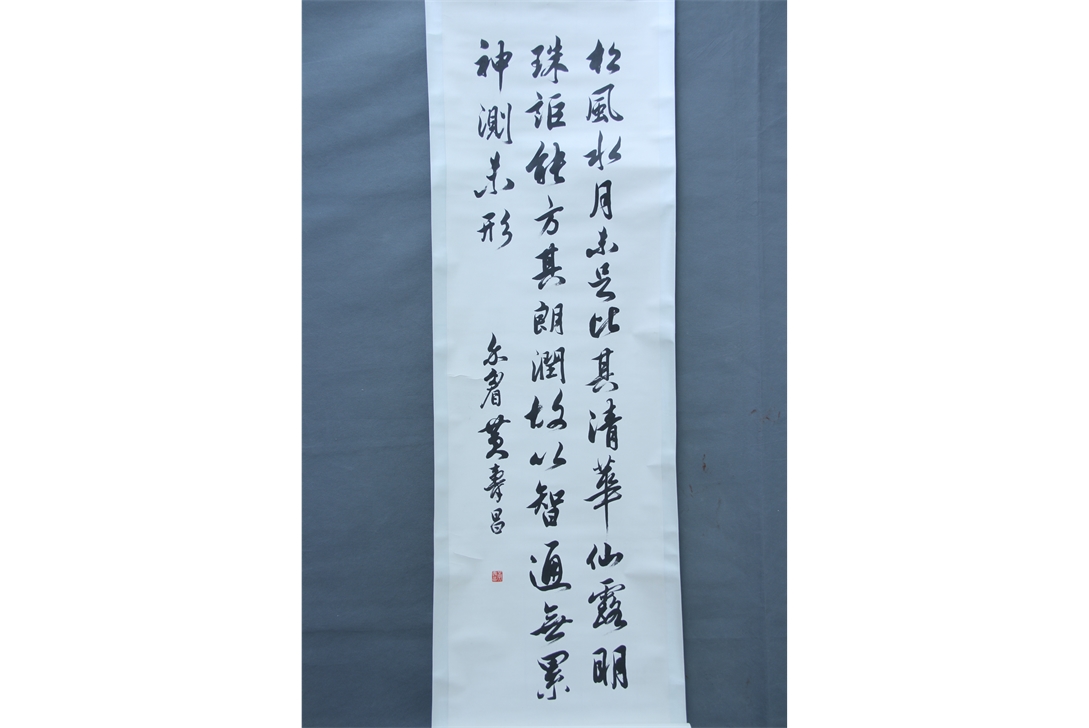 松風水月未足比其清華仙露明
珠詎能方其朗潤故以智通無累
神測未形
尔眉黄壽昌